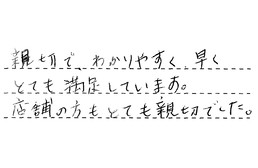 親切で、わかりやすく、早く
とても満足しています。
店舗の方もとても親切でした。